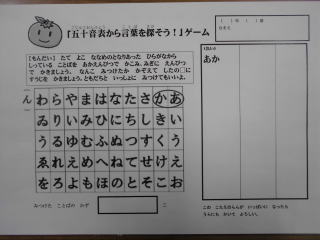 「五十音表から言葉を探そう!」ゲーム
【もんだい】 たて よこ ななめのとなりあった ひらがなから
しっている ことばを あかえんぴつで かこみ、みぎに えんぴつ
で かきましょう。 なんこ みつけたか かぞえて したの□に
すうじを かきましょう。ともだちと いっしょに みつけてもいいよ。
(ん)
わらやまはなたさかあ
ゐりいみひにちしきい
うるゆむふぬつすくう
ゑれえめへねてせけえ
をろよもほのとそこお
みつけた ことばの かず
こ
なまえ
あか
この こたえのらんが いっぱいに なったら
うらにも かいて よろしい。